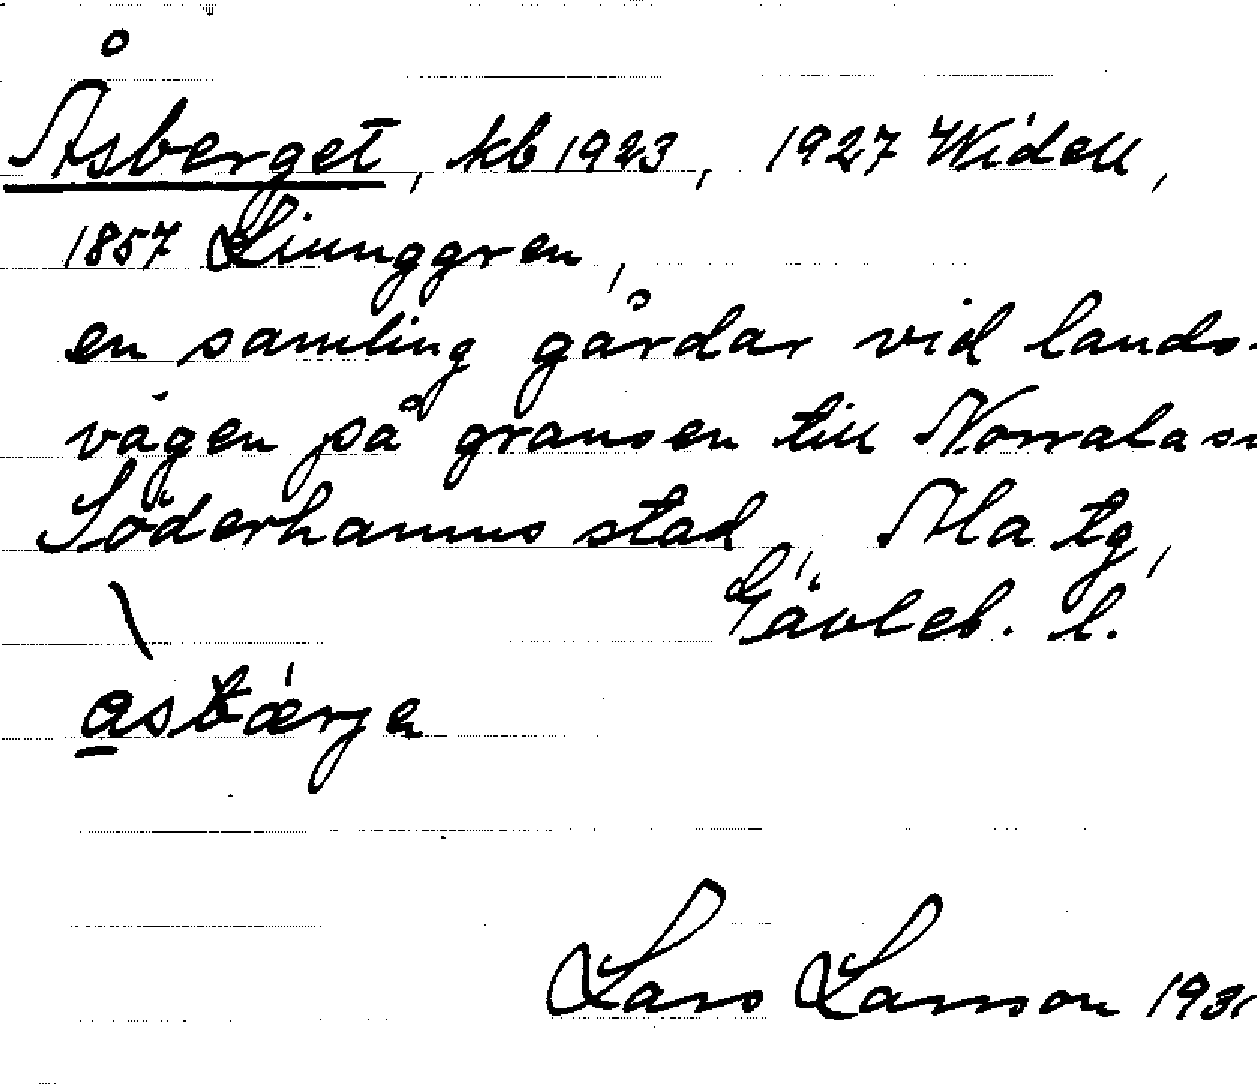 Åsberget, kb 1923, 1927 Widell,
1857 Ljunggren,
en samling gårdar vid lands-
vägen på gränsen till Norrala sn
Söderhamns stad, Ala tg,
Gävleb. l.
åsbærjɐ
Lars Larsson 1931